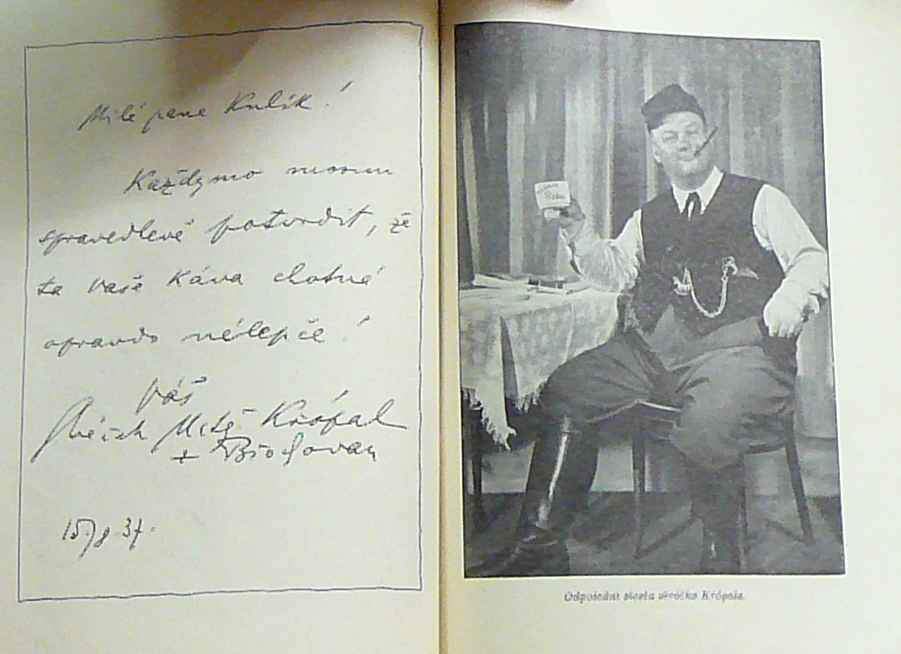 Milé pane Kulík!
Každymo mosim
spravedlevě potvrdit, že
ta vaše káva chotná
opravdo nélepče!
Váš
Stréček Matěj Křópal
+ Břochovan
15/8. 37.
Odpolední siesta stréčka Křópala.